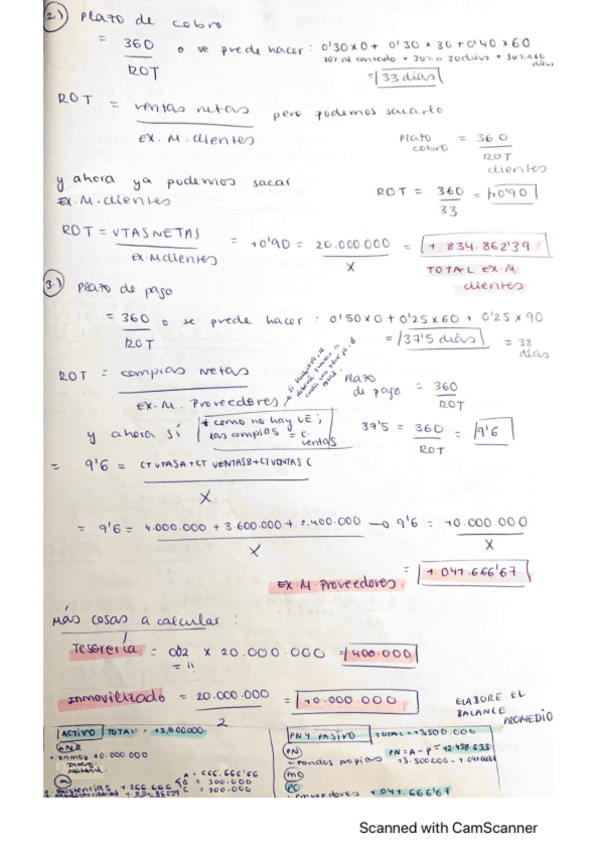 2.) Plazo de cobro
= 360 / ROT o se prede hacer: 0'30x0+ 0'30 x 30 +0'40 x 60
30% al contado + 30% a 30 días +
= 33 días
ROT = ventas netas / EX. M. clientes pero podemos sacarlo
Plazo cobro = 360 / ROT clientes
y ahora ya podemos sacar
EX.M.clientes
ROT = 360 / 33 = 10'90
ROT = VTAS NETAS / EX.M clientes = 10'90 = 20.000.000 / X = 1 834.862'39
TOTAL EX.M clientes
3.) Plazo de pago
= 360 / ROT o se prede hacer: 0'50x0 + 0'25x60 + 0'25 x 90
= 37'5 días = 38 días
ROT = compras netas / EX.M. Proveedores
Plazo de pago = 360 / ROT
y ahora sí
* como no hay VE; las compras = C. ventas
37'5 = 360 / ROT = 9'6
= 9'6 = CT VTAS A + CT VENTAS B + CT VENTAS C / X
= 9'6 = 4.000.000 + 3.600.000 + 2.400.000 / X → 9'6 = 10.000.000 / X
EX.M. Proveedores = 1.041.666'67
Más cosas a calcular:
Tesorería = 0'02 x 20.000.000 = 400.000
Inmovilizado = 20.000.000 / 2 = 10.000.000
ELABORE EL BALANCE PROMEDIO
ACTIVO TOTAL = 13,500.000
ANC
10.000.000
A = 666.666'66
B = 300.000
C = 300.000
existencias 1.266.666
PN Y PASIVO TOTAL = 13500.000
PN PN = A - P = 12.458.333
Fondos propios 13.500.000 - 1.041667
PC
Proveedores 1.041.666'67
Scanned with CamScanner